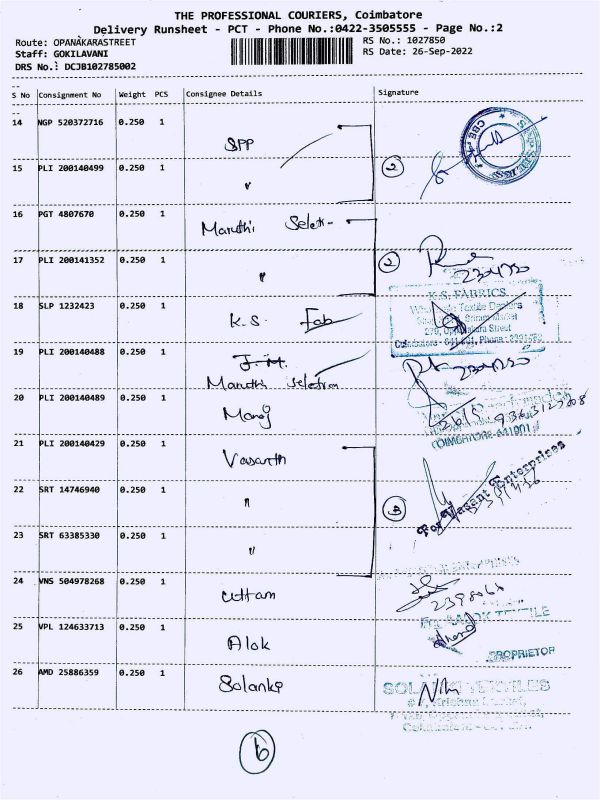 THE PROFESSIONAL COURIERS, Coimbatore
Delivery Runsheet - PCT - Phone No.:0422-3505555 - Page No.:2
Route: OPANAKARASTREET RS No.: 1027850
Staff: GOKILAVANI RS Date: 26-Sep-2022
DRS No.: DCJB102785002
S No Consignment No Weight PCS Consignee Details Signature
14 NGP 520372716 0.250 1 SPP
15 PLI 200140499 0.250 1 " 2
16 PGT 4807670 0.250 1 Maruthi Seletr-
17 PLI 200141352 0.250 1 " 2
18 SLP 1232423 0.250 1 K.S. Fab
K.S. FABRICS
Coimbatore - 641 001, Phone :
19 PLI 200140488 0.250 1 J.M.
Maruthi Seletion
20 PLI 200140489 0.250 1 Manoj
COIMBATORE-641001
21 PLI 200140429 0.250 1 Vasanth
For Vasant Enterprises
22 SRT 14746940 0.250 1 "
23 SRT 63385330 0.250 1 " 3
24 VNS 504978268 0.250 1 Uttam
25 VPL 124633713 0.250 1 Alok
PROPRIETOR
26 AMD 25886359 0.250 1 Solanki
SOLANKI TEXTILES
6